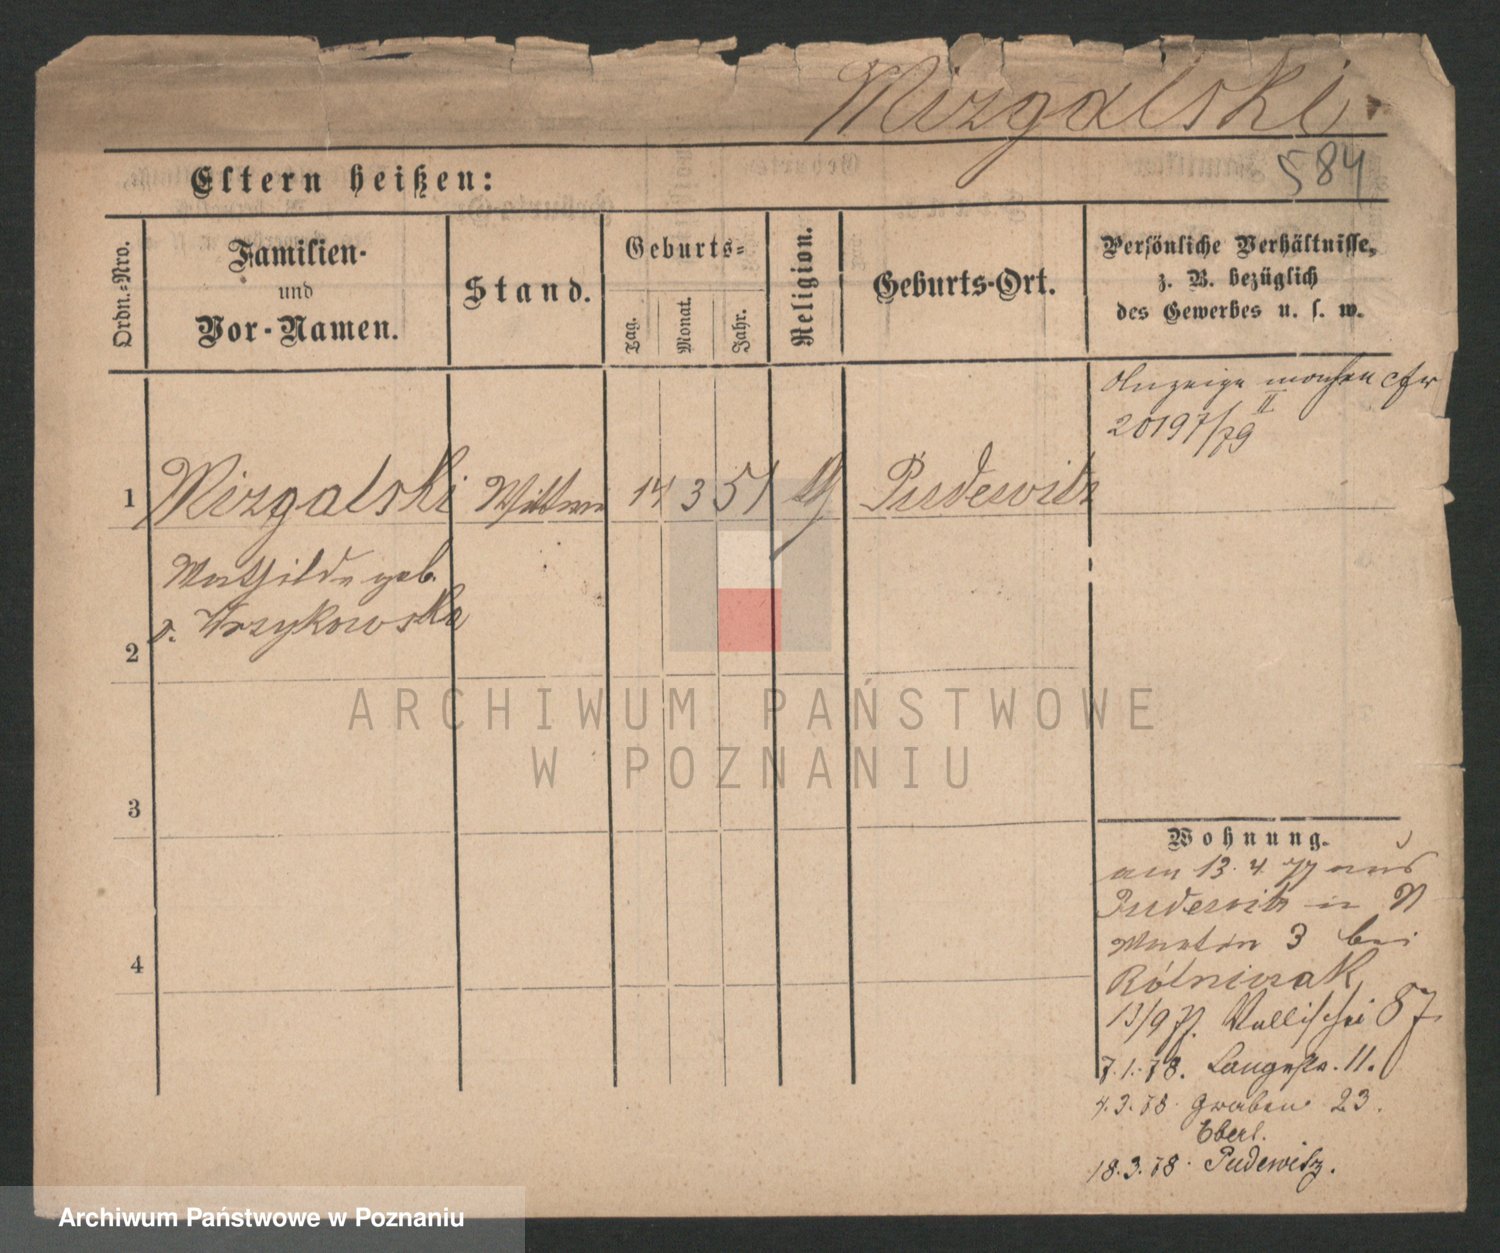 Mizgalski.
584
Eltern heißen:
Ordn.-Nro.
Familien-
und
Vor-Namen.
Stand.
Geburts-
Tag.
Monat.
Jahr.
Religion.
Geburts-Ort.
Persönliche Verhältnisse,
z. B. bezüglich
des Gewerbes u. s. w.
Anzeige machen cfr
II
20197/79
1 Mizgalski Wittwe 14 3 51 Pudewitz
Mathilde geb.
v. Trzykowska
2
3
4
ARCHIWUM PAŃSTWOWE
W POZNANIU
Wohnung.
am 13. 4. 77 aus
Pudewitz in
Martin 3 bei
Rólniczak
13/9 77. Wallischei 87
7.1.78. Langestr. 11.
4.3.78. Graben 23.
Eberl.
18.3.78. Pudewitz.
Archiwum Państwowe w Poznaniu